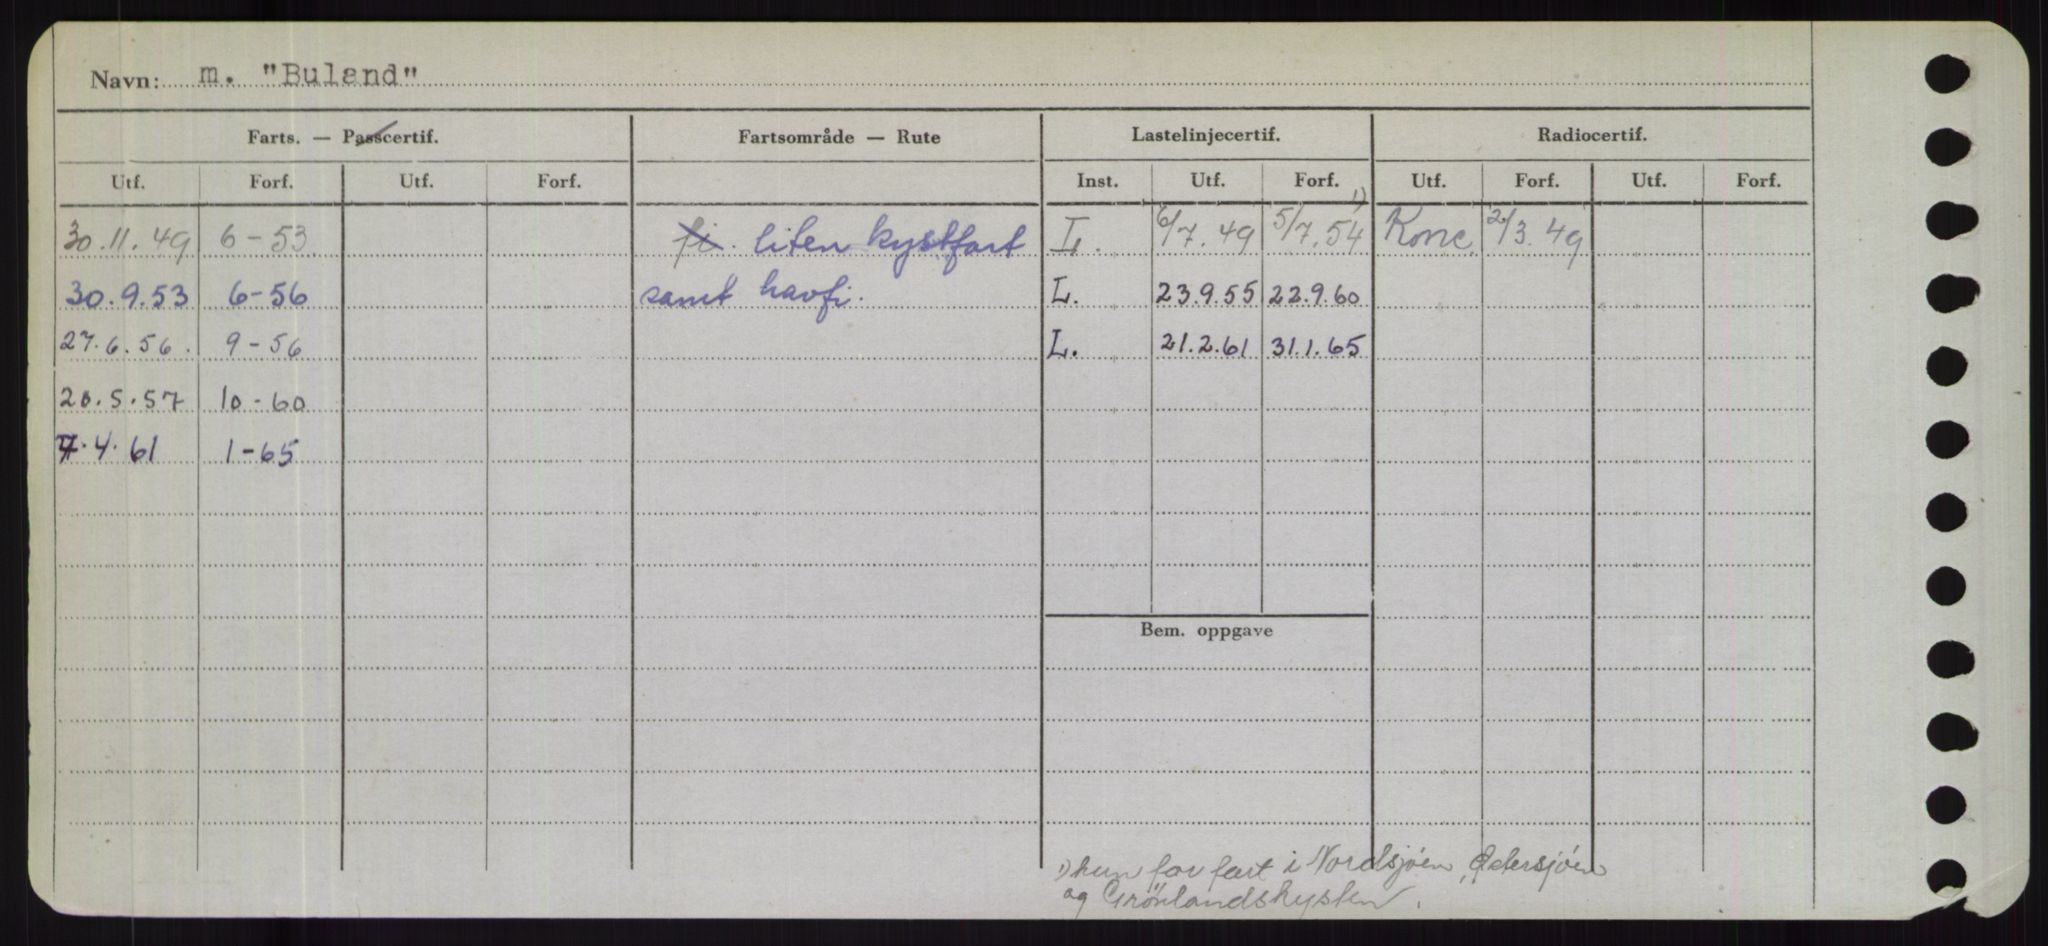 Navn: m. "Buland"
Farts. — Passcertif. Fartsområde — Rute Lastelinjecertif. Radiocertif.
Utf. Forf. Utf. Forf. Inst. Utf. Forf. Utf. Forf. Utf. Forf.
30.11.49 6-53 fi. liten kystfart L. 6/7.49 5/7.54 1) Konc. 2/3.49
30.9.53 6-56 samt havfi. L. 23.9.55 22.9.60
27.6.56. 9-56 L. 21.2.61 31.1.65
20.5.57 10-60
7.4.61 1-65
Bem. oppgave
1) kun for fart i Nordsjøen, Østersjøen
og Grønlandskysten.